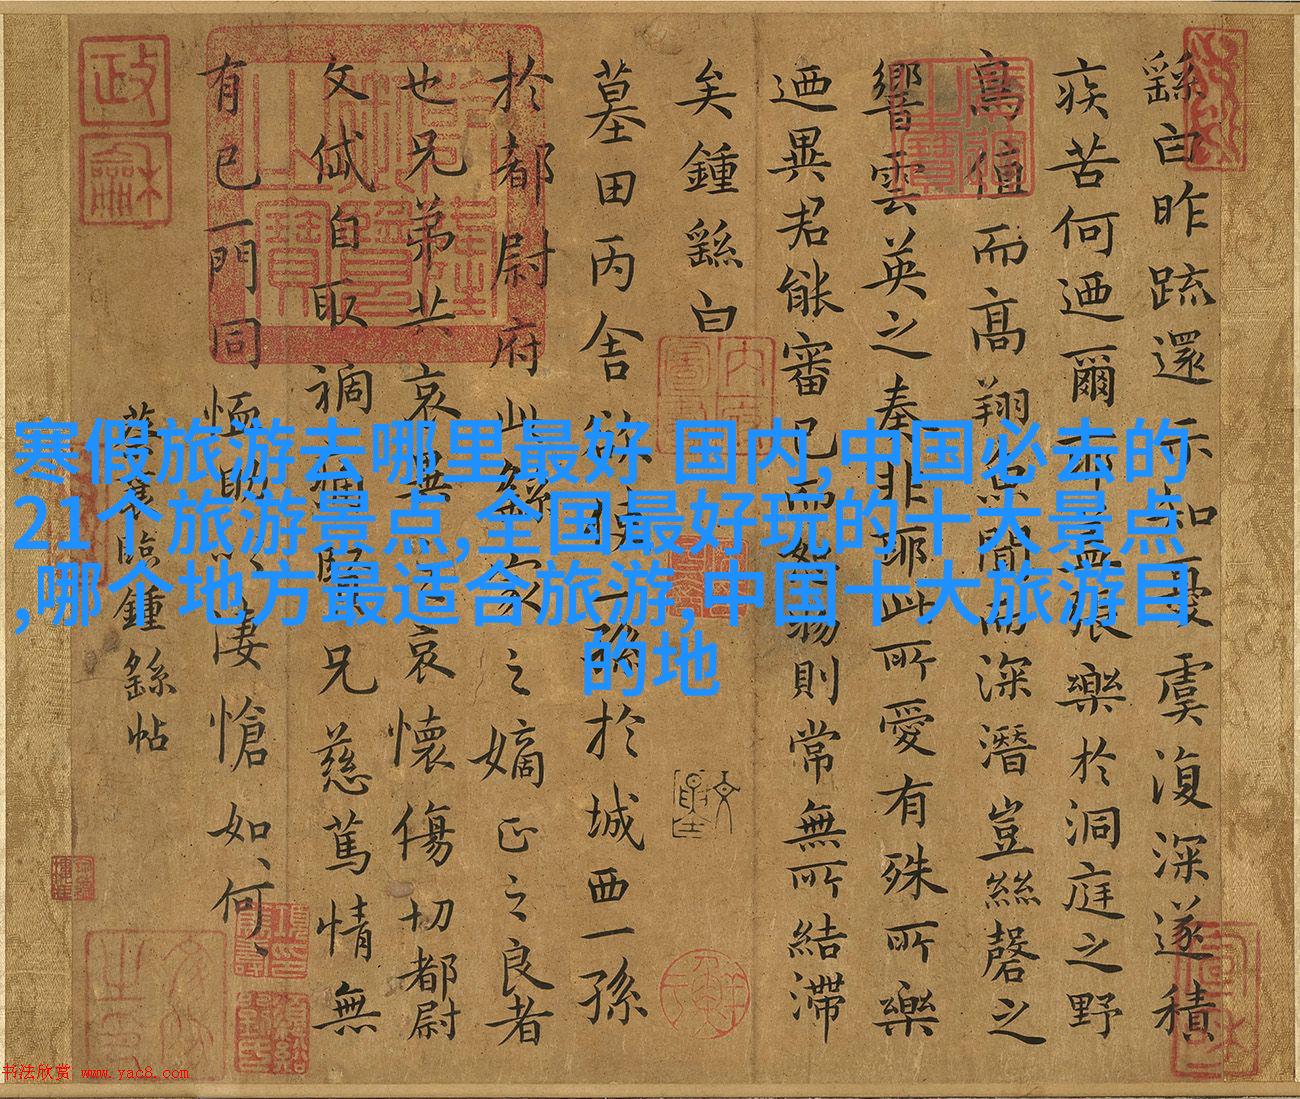 繇白昨疏還示知憂虞復深遂積
疾苦何迺爾耶蓋張樂於洞庭之野
鳥值而高翔魚聞而深潛豈絲磬之
響雲英之奏非耶此所愛有殊所樂
迺異君能審己而恕物則常無所結滯
矣鍾繇白
墓田丙舍欲使一孫於城西一孫
於都尉府此繇家之嫡正之良者
也兄弟共哀異之哀懷傷切都尉
文岱自取禍痛賢兄慈篤情無
有已一門同恤助以悽愴如何
薛道祖臨鍾繇帖
寒假旅游去哪里最好 国内,中国必去的
21个旅游景点,全国最好玩的十大景点
,哪个地方最适合旅游,中国十大旅游目
的地
书法欣赏 www.yac8.com